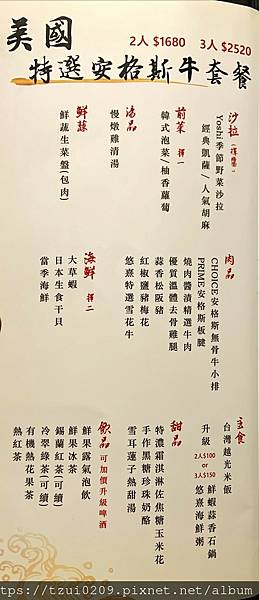 美國
2人 $1680　3人 $2520
特選安格斯牛套餐
沙拉(擇壹)
Yoshi季節野菜沙拉
經典凱薩/人氣胡麻
前菜 擇一
韓式泡菜/柚香蘿蔔
湯品
慢燉雞清湯
鮮蔬
鮮蔬生菜盤(包肉)
肉品
CHOICE安格斯無骨牛小排
PRIME安格斯板腱
燒肉醬漬精選牛肉
優質溫體去骨雞腿
蒜香松阪豬
紅椒鹽豬梅花
悠熹特選雪花牛
海鮮 擇二
大草蝦
日本生食干貝
當季海鮮
主食
台灣越光米飯
升級 2人$100 or 3人$150
鮮蝦蒜香石鍋
悠熹海鮮粥
甜品
特濃霜淇淋佐焦糖玉米花
手作黑糖珍珠奶酪
雪耳蓮子熱甜湯
飲品 可加價升級啤酒
鮮果露氣泡飲
鮮果冰茶
錫蘭紅茶(可續)
冷翠綠茶(可續)
有機熱花果茶
熱紅茶
tps://tzui0209.pixnet.net/album